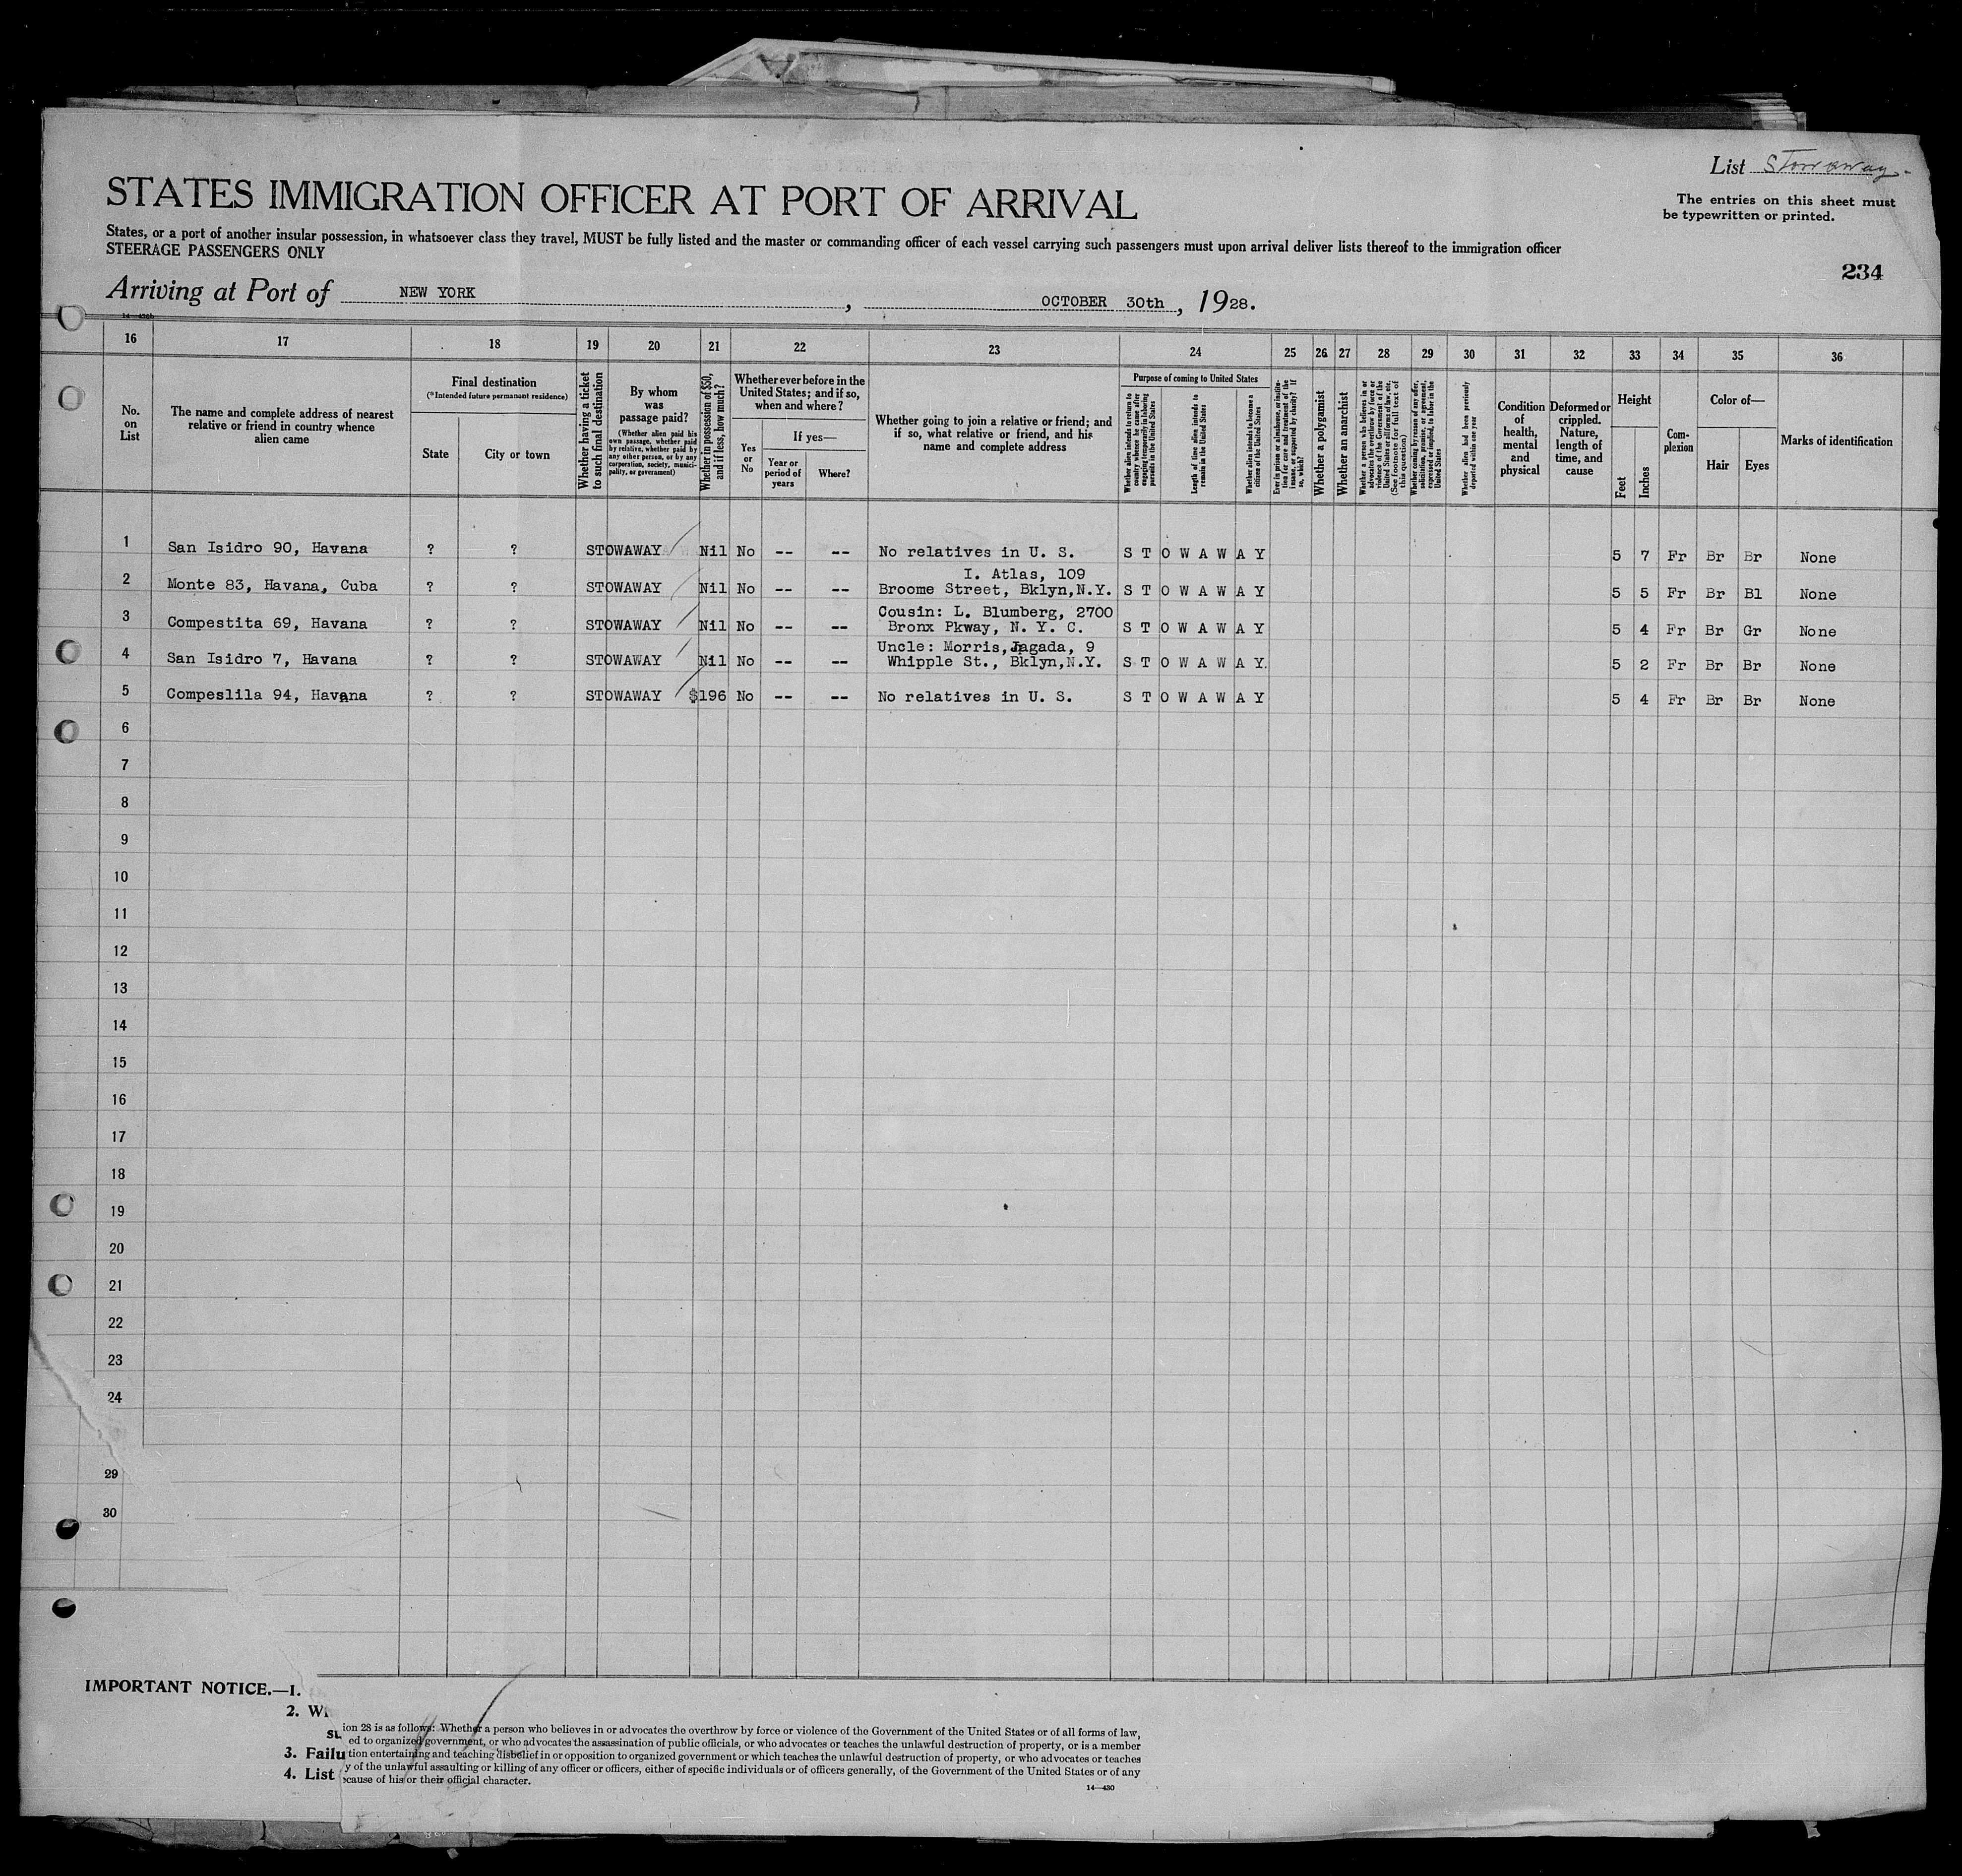 List Stowaway.
STATES IMMIGRATION OFFICER AT PORT OF ARRIVAL
The entries on this sheet must
be typewritten or printed.
States, or a port of another insular possession, in whatsoever class they travel, MUST be fully listed and the master or commanding officer of each vessel carrying such passengers must upon arrival deliver lists thereof to the immigration officer
STEERAGE PASSENGERS ONLY
234
Arriving at Port of NEW YORK, OCTOBER 30th, 1928.
14—430b
16 17 18 19 20 21 22 23 24 25 26 27 28 29 30 31 32 33 34 35 36
No. on List
The name and complete address of nearest relative or friend in country whence alien came
Final destination
(*Intended future permanent residence)
State
City or town
Whether having a ticket to such final destination
By whom was passage paid?
(Whether alien paid his own passage, whether paid by relative, whether paid by any other person, or by any corporation, society, municipality, or government)
Whether in possession of $50, and if less, how much?
Whether ever before in the United States; and if so, when and where?
Yes or No
If yes—
Year or period of years
Where?
Whether going to join a relative or friend; and if so, what relative or friend, and his name and complete address
Purpose of coming to United States
Whether alien intends to return to country whence he came after engaging temporarily in laboring pursuits in the United States
Length of time alien intends to remain in the United States
Whether alien intends to become a citizen of the United States
Ever in prison or almshouse, or institution for care and treatment of the insane, or supported by charity? If so, which?
Whether a polygamist
Whether an anarchist
Whether a person who believes in or advocates the overthrow by force or violence of the Government of the United States or all forms of law, etc. (See footnote for full text of this question)
Whether coming by reason of any offer, solicitation, promise, or agreement, expressed or implied, to labor in the United States
Whether alien had been previously deported within one year
Condition of health, mental and physical
Deformed or crippled. Nature, length of time, and cause
Height
Feet
Inches
Complexion
Color of—
Hair
Eyes
Marks of identification
1 San Isidro 90, Havana ? ? STOWAWAY Nil No -- -- No relatives in U. S. S T O W A W A Y 5 7 Fr Br Br None
2 Monte 83, Havana, Cuba ? ? STOWAWAY Nil No -- -- I. Atlas, 109
Broome Street, Bklyn,N.Y. S T O W A W A Y 5 5 Fr Br Bl None
3 Compestita 69, Havana ? ? STOWAWAY Nil No -- -- Cousin: L. Blumberg, 2700
Bronx Pkway, N. Y. C. S T O W A W A Y 5 4 Fr Br Gr None
4 San Isidro 7, Havana ? ? STOWAWAY Nil No -- -- Uncle: Morris, Jagada, 9
Whipple St., Bklyn,N.Y. S T O W A W A Y. 5 2 Fr Br Br None
5 Compeslila 94, Havana ? ? STOWAWAY $196 No -- -- No relatives in U. S. S T O W A W A Y 5 4 Fr Br Br None
6
7
8
9
10
11
12
13
14
15
16
17
18
19
20
21
22
23
24
29
30
IMPORTANT NOTICE.—1.
2. W
3. Failu
4. List
ion 28 is as follows: Whether a person who believes in or advocates the overthrow by force or violence of the Government of the United States or of all forms of law,
ed to organized government, or who advocates the assassination of public officials, or who advocates or teaches the unlawful destruction of property, or is a member
tion entertaining and teaching disbelief in or opposition to organized government or which teaches the unlawful destruction of property, or who advocates or teaches
y of the unlawful assaulting or killing of any officer or officers, either of specific individuals or of officers generally, of the Government of the United States or of any
cause of his or their official character.
14—430